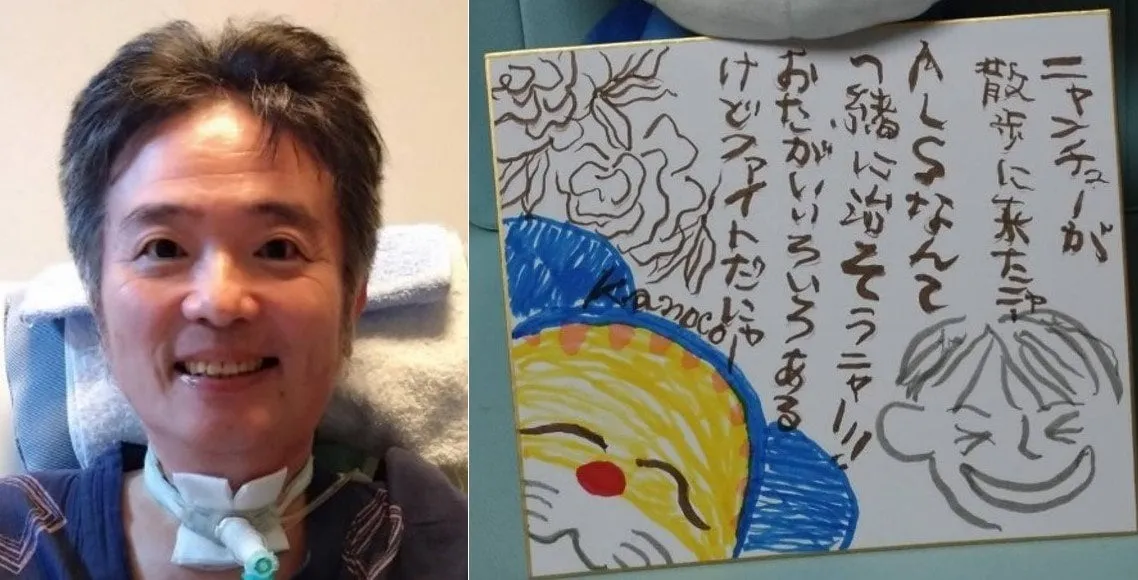 ニャンチューが
散歩に来たニャ
ALSなんて
一緒に治そうニャー!!!
おたがいいろいろある
けどファイトだにゃー